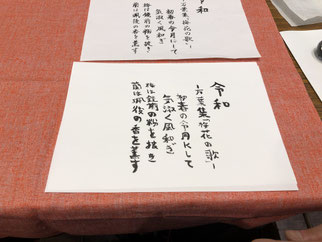 令和
万葉集「梅花の歌」
初春の令月にして
気淑く風和ぎ
梅は鏡前の粉を披き
蘭は珮後の香を薫す
和
万葉集「梅花の歌」
初春の令月にして
気淑く風和ぎ
梅は鏡前の粉を披き
蘭は珮後の香を薫す